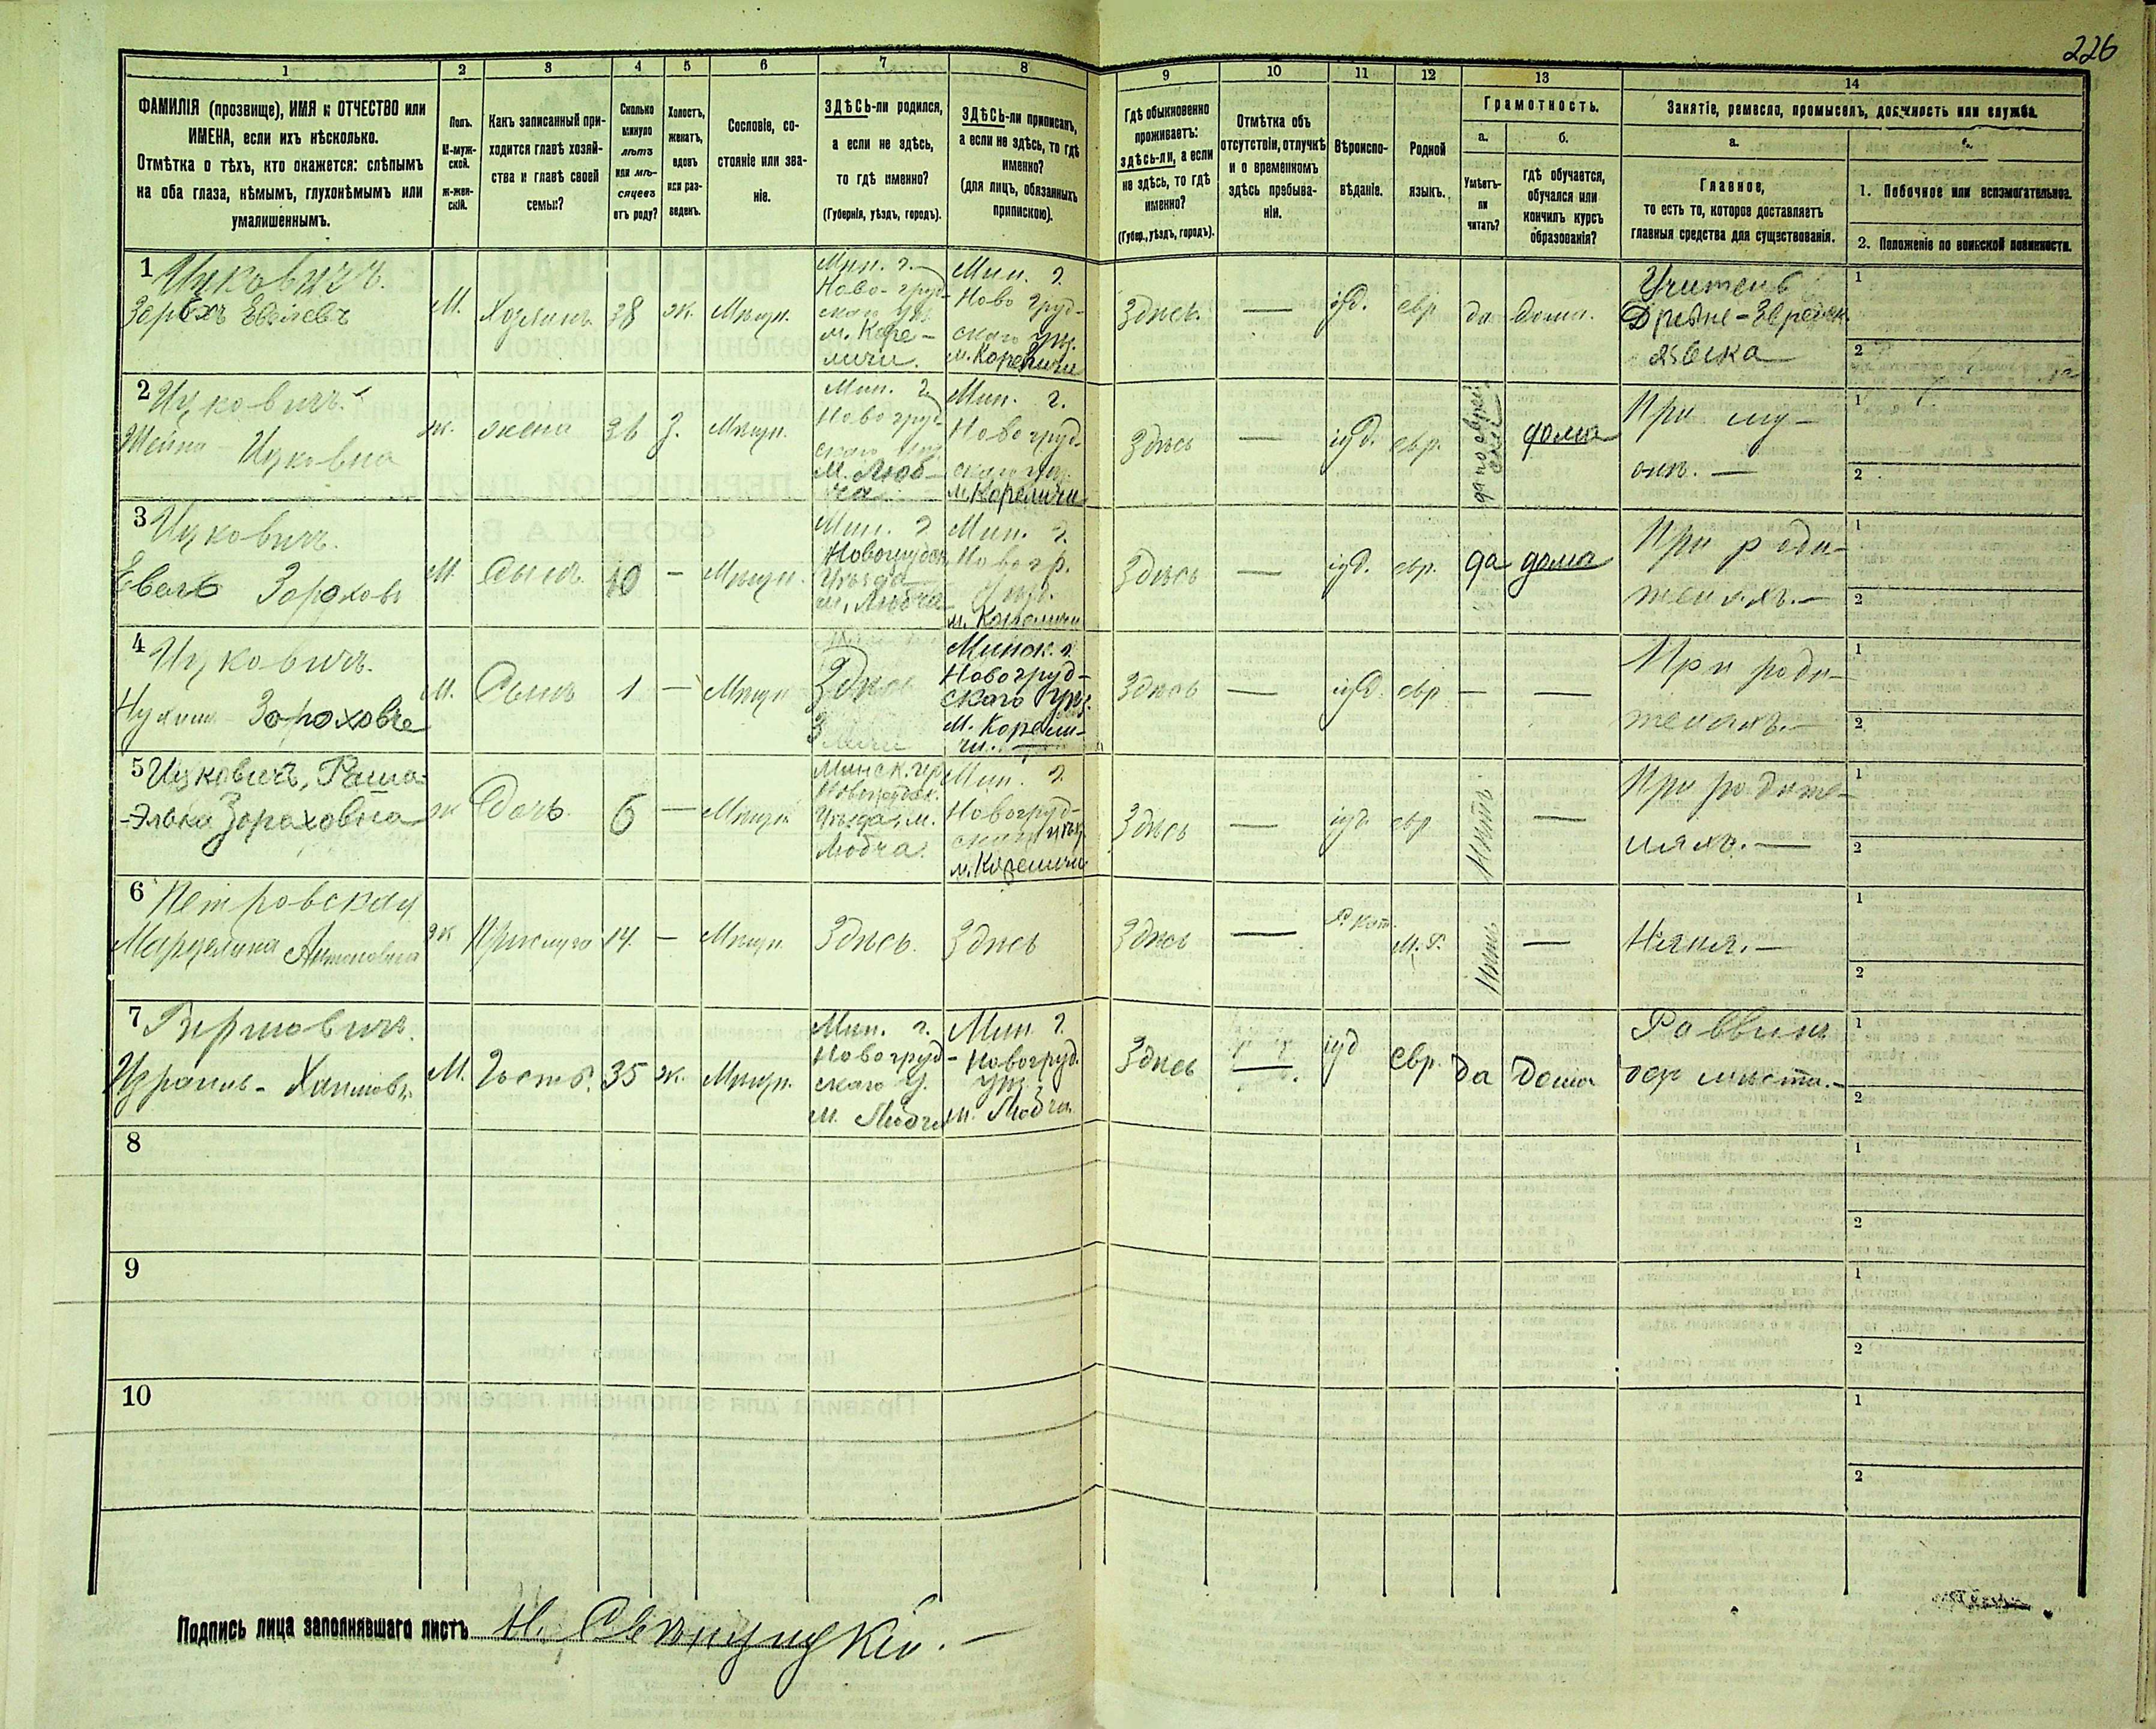 226
1 2 3 4 5 6 7 8 9 10 11 12 13 14
ФАМИЛІЯ (прозвище), ИМЯ и ОТЧЕСТВО или
ИМЕНА, если ихъ нѣсколько.
Отмѣтка о тѣхъ, кто окажется: слѣпымъ
на оба глаза, нѣмымъ, глухонѣмымъ или
умалишеннымъ.
Полъ.
М-муж-
ской.
Ж-жен-
скій.
Какъ записанный при-
ходится главѣ хозяй-
ства и главѣ своей
семьи?
Сколько
минуло
лѣтъ
или мѣ-
сяцевъ
отъ роду?
Холостъ,
женатъ,
вдовъ
или раз-
веденъ.
Сословіе, со-
стояніе или зва-
ніе.
ЗДѢСЬ-ли родился,
а если не здѣсь,
то гдѣ именно?
(Губернія, уѣздъ, городъ).
ЗДѢСЬ-ли приписанъ,
а если не здѣсь, то гдѣ
именно?
(для лицъ, обязанныхъ
припискою).
Гдѣ обыкновенно
проживаетъ:
здѣсь-ли, а если
не здѣсь, то гдѣ
именно?
(Губер., уѣздъ, городъ).
Отмѣтка объ
отсутствіи, отлучкѣ
и о временномъ
здѣсь пребыва-
ніи.
Вѣроиспо-
вѣданіе.
Родной
языкъ.
Грамотность.
а.
Умѣетъ-
ли
читать?
б.
гдѣ обучается,
обучался или
кончилъ курсъ
образованія?
Занятіе, ремесло, промыселъ, должность или служба.
а.
Главное,
то есть то, которое доставляетъ
главныя средства для существованія.
1. Побочное или вспомогательное.
2. Положеніе по воинской повинности.
1 Ицковичъ.
М. Хозяинъ 38 ж. Мѣщ.
Мин. г.
Ново-груд-
м. Коре-
личи.
Мин. г.
Ново груд-
скаго уѣз.
м. Кореличи
Здѣсь. — іуд. евр. да дома.
Учитель
Древне-Еврейск.
языка
1
2
2 Ицковичъ.
Ицковна
ж. жена 36 З. Мѣщ.
Мин. г.
Новогруд-
м. Люб-
ча
Мин. г.
Новогруд-
скаго уѣз.
м. Кореличи
Здѣсь — іуд. евр. да по еврей-
ски
дома
При му-
жѣ. —
1
2
3 Ицковичъ.
М. Сынъ 10 — Мѣщ.
Мин. г.
Новогрудск.
Уѣзда
м. Любча
Мин. г.
Новогр.
уѣз.
м. Кореличи
Здѣсь — іуд. евр. да дома
При роди-
теляхъ. —
1
2
4 Ицковичъ.
М. Сынъ 1 — Мѣщ.
Здѣсь
Минск. г.
Новогруд-
скаго уѣз.
м. Корели-
чи. —
Здѣсь — іуд. евр — —
При роди-
теляхъ. —
1
2
5 Ицковичъ, Раша-
Зораховна
ж Дочь 6 — Мѣщ.
Минск. гр
Новогрудск.
Уѣзда, м.
Любча.
Мин. г.
Новогруд-
скаго уѣз.
м. Кореличи
Здѣсь — іуд. евр Нѣтъ —
При родите-
ляхъ. —
1
2
6 Петровская
Марцелина Антоновна
ж Прислуга 14 — Мѣщ. Здѣсь. Здѣсь
Здѣсь — Р. Кат. Нѣтъ —
Няня. —
1
2
7
Израиль-
М. Гость. 35 ж. Мѣщ.
Мин. г.
Новогруд-
скаго у.
м. Любча
Мин г.
Новогруд.
уѣз.
м. Любча.
Здѣсь — іуд евр. да дома
Раввинъ
безъ мѣста. —
1
2
8
1
2
9
1
2
10
1
2
Подпись лица заполнявшаго листъ